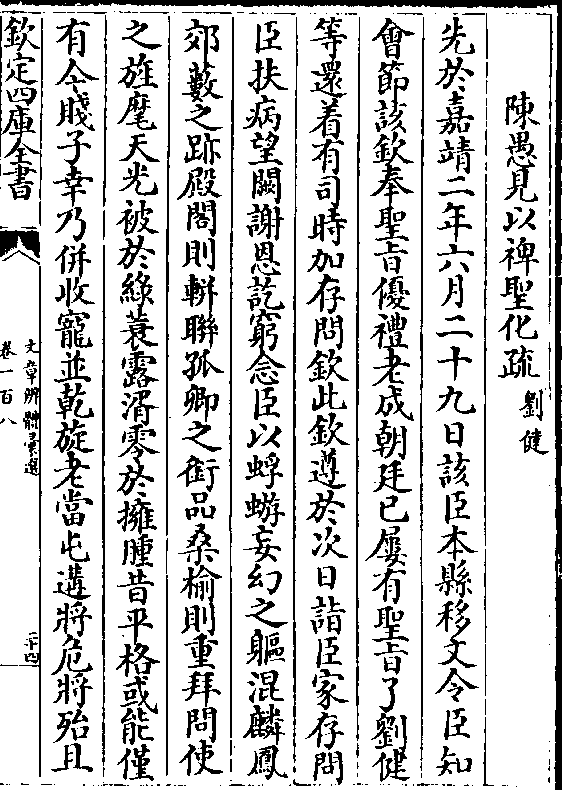 陳愚見以裨聖化疏　劉健
先於嘉靖二年六月二十九日該臣本縣移文令臣知
會節該欽奉聖旨優禮老成朝廷已屢有聖旨了劉健
等還着有司時加存問欽此欽遵於次日詣臣家存問
臣扶病望闕謝恩訖窮念臣以蜉蝣妄幻之軀混麟鳳
郊藪之跡殿閣則輧聯孤卿之銜品桑榆則重拜問使
之旌麾天光被於綠蓑露湑零於擁腫昔平格或能僅
有今賤子幸乃併收寵並乾旋老當屯遘將危將殆且
欽定四庫全書
文章辨體彙選
卷一百八
二十四